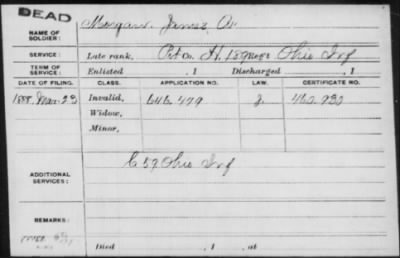 DEAD
NAME OF SOLDIER: Morgan, James A.
SERVICE: Late rank, Pvt Co. H, 189 Ohio Inf
TERM OF SERVICE: Enlisted , 1 Discharged , 1
DATE OF FILING. CLASS. APPLICATION NO. LAW. CERTIFICATE NO.
1888 Mar 23 Invalid, 646.479 460.930
Widow,
Minor,
ADDITIONAL SERVICES: C 59 Ohio Inf
REMARKS:
Died , 1 , at